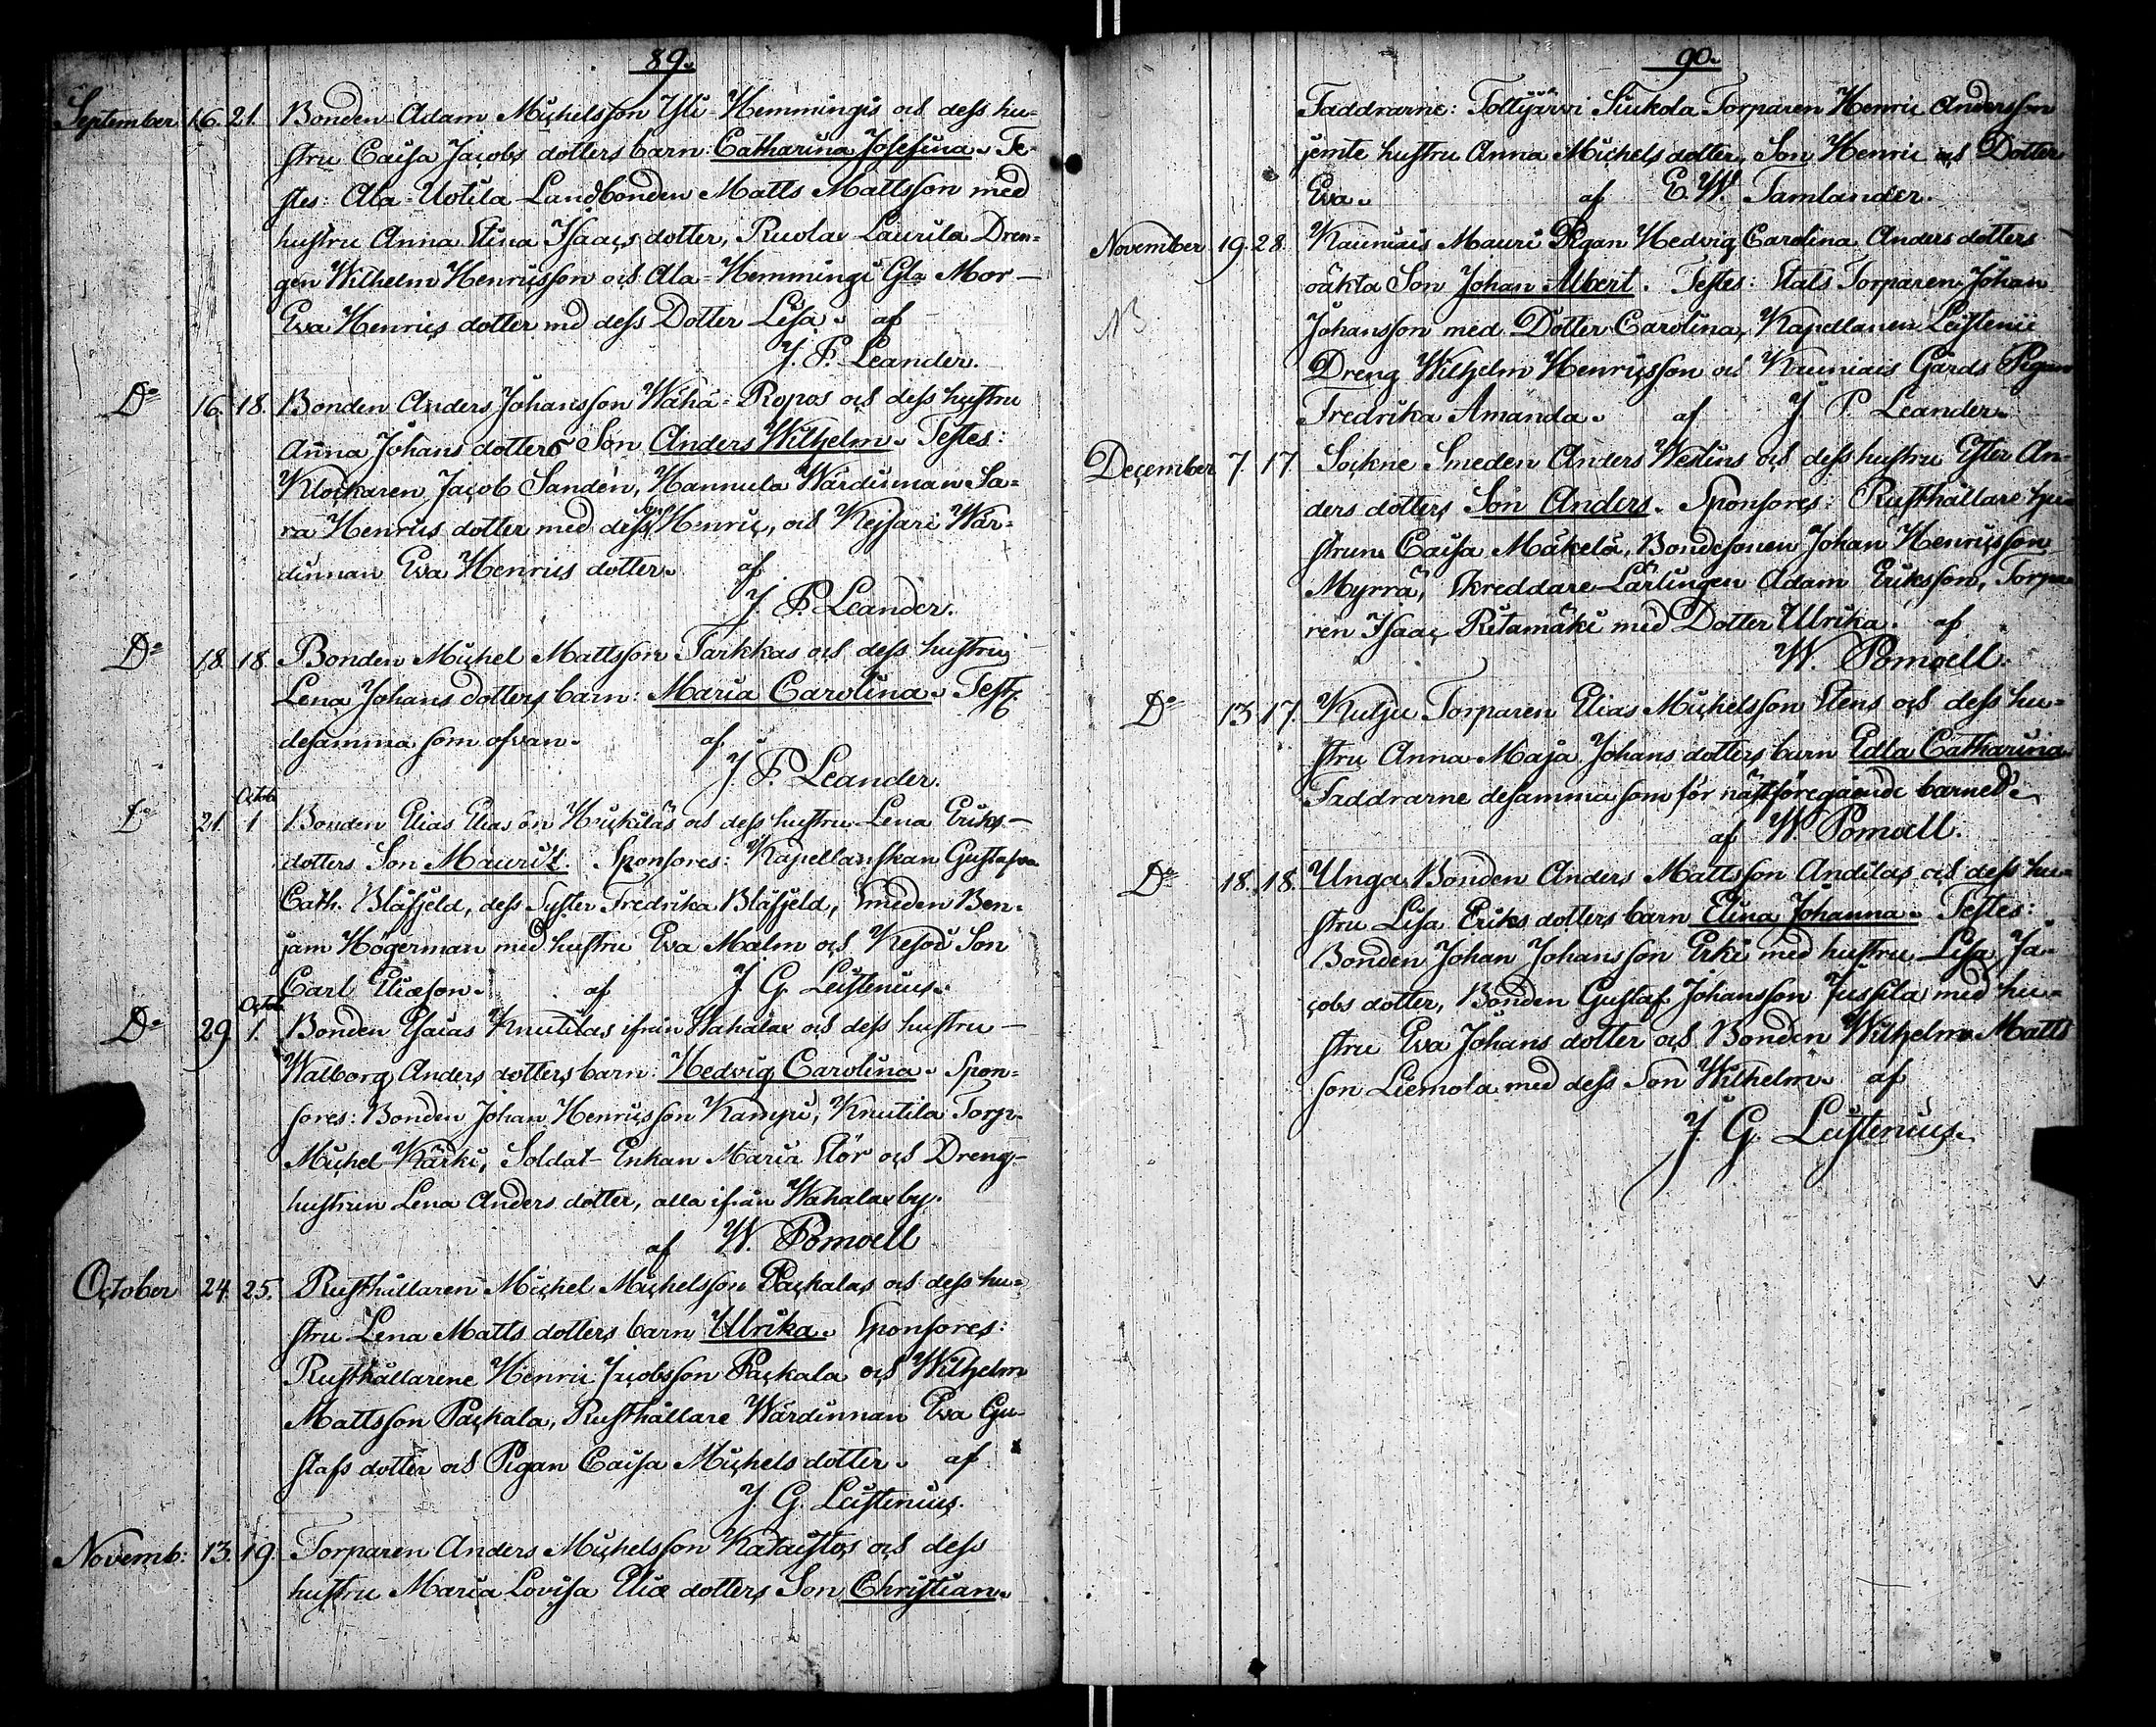 89.
September 16. 21. Bonden Adam Michelsson Yli-Hemmingis och dess hu-
stru Caisa Jacobs dotters barn: Catharina Josefina. Te-
stes: Ala-Uotila Landbonden Matts Mattsson med
hustru Anna Stina Isaacs dotter, Ruola Laurila Dren-
gen Wilhelm Henricsson och Ala-Hemmingi Gla Mor-
Eva Henrics dotter med dess Dotter Lisa. af
J. P. Leander.
Do 16. 18. Bonden Anders Johansson Wähä-Ropos och dess hustru
Anna Johans dotters Son Anders Wilhelm. Testes:
Klockaren Jacob Sandén, Hannula Wärdinnan Sa-
ra Henrics dotter med dess Henric, och Kejsari Wär-
dinnan Eva Henrics dotter. af
J. P. Leander.
Do 18. 18. Bonden Michel Mattsson Tarkkas och dess hustru
Lena Johans dotters barn: Maria Carolina. Test.
desamma som ofvan. af
J. P. Leander.
Octob.
Do 21. 1 Bonden Elias Elias ön Huckiläs och dess hustru Lena Eriks-
dotters Son Mauritz. Sponsores: Kapellanskan Gustafva
Cath. Blåfjeld, dess Syster Fredrika Blåfjeld, Smeden Ben-
jam Högerman med hustru Eva Malm och Son
Carl Eliæson. af J. G. Leistenius.
Octob.
Do 29. 1. Bonden Esaias Knutilas ifrån Wahalax och dess hustru-
Walborg Anders dotters barn: Hedvig Carolina. Spon-
sores: Bonden Johan Henricsson Kamppi, Knutila Torp.
Michel Kärki, Soldat-Enkan Maria Stör och Dreng-
hustrun Lena Anders dotter, alla ifrån Wahalax by.
af W. Pomoell
October 24. 25. Rusthållaren Michel Michelsson Packalas och dess hu-
stru Lena Matts dotters barn Ulrika. Sponsores:
Rusthållarene Henric Jacobsson Packala och Wilhelm
Mattsson Packala, Rusthållare Wärdinnan Eva Gu-
stafs dotter och Pigan Caisa Michels dotter. af
J. G. Leistenius.
Novemb: 13. 19. Torparen Anders Michelsson Kataistos och dess
hustru Maria Lovisa Eliæ dotters Son Christian.
90.
Faddrarne: Tottijärvi Siukola Torparen Henric Andersson
jemte hustru Anna Michels dotter, Son Henric och Dotter
Eva. af E. W. Tamlander.
November 19. 28. Kauniais Mauri Pigan Hedvig Carolina Anders dotters
oäkta Son Johan Albert. Testes: Stats Torparen Johan
NB
Johansson med Dotter Carolina, Kapellanen Leistenii
Dreng Wilhelm Henricsson och Kauniais Gårds Pigan
Fredrika Amanda. af J. P. Leander.
December 7. 17. Sockne Smeden Anders Westins och dess hustru Ester An-
ders dotters Son Anders. Sponsores: Rusthållare hu-
strun Caisa Mäkelä, Bondesonen Johan Henricsson
Myrrä, Skreddare-Lärlingen Adam Eriksson, Torpa-
ren Isaac Ritamäki med Dotter Ulrika. af
W. Pomoell.
Do 13. 17. Kulju Torparen Elias Michelsson Stens och dess hu-
stru Anna Maja Johans dotters barn Edla Catharina
Faddrarne desamma som för nästföregående barnet.
af W. Pomoell.
Do 18. 18. Unga Bonden Anders Mattsson Andilas och dess hu-
stru Lisa Eriks dotters barn Elina Johanna. Testes:
Bonden Johan Johansson Erki med hustru Lisa Ja-
cobs dotter, Bonden Gustaf Johansson Jussila med hu-
stru Eva Johans dotter och Bonden Wilhelm Matts
son Liemola med dess Son Wilhelm. af
J. G. Leistenius.